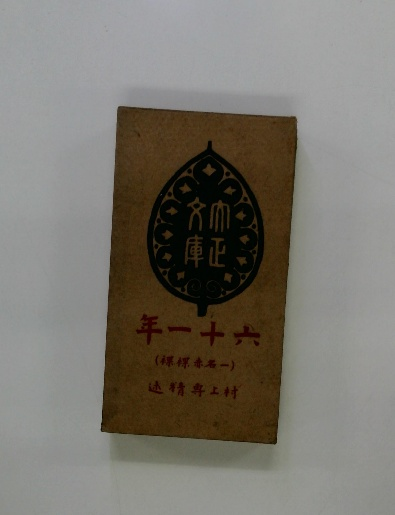 大正
文庫
六十一年
(一名赤裸裸)
村上専精述